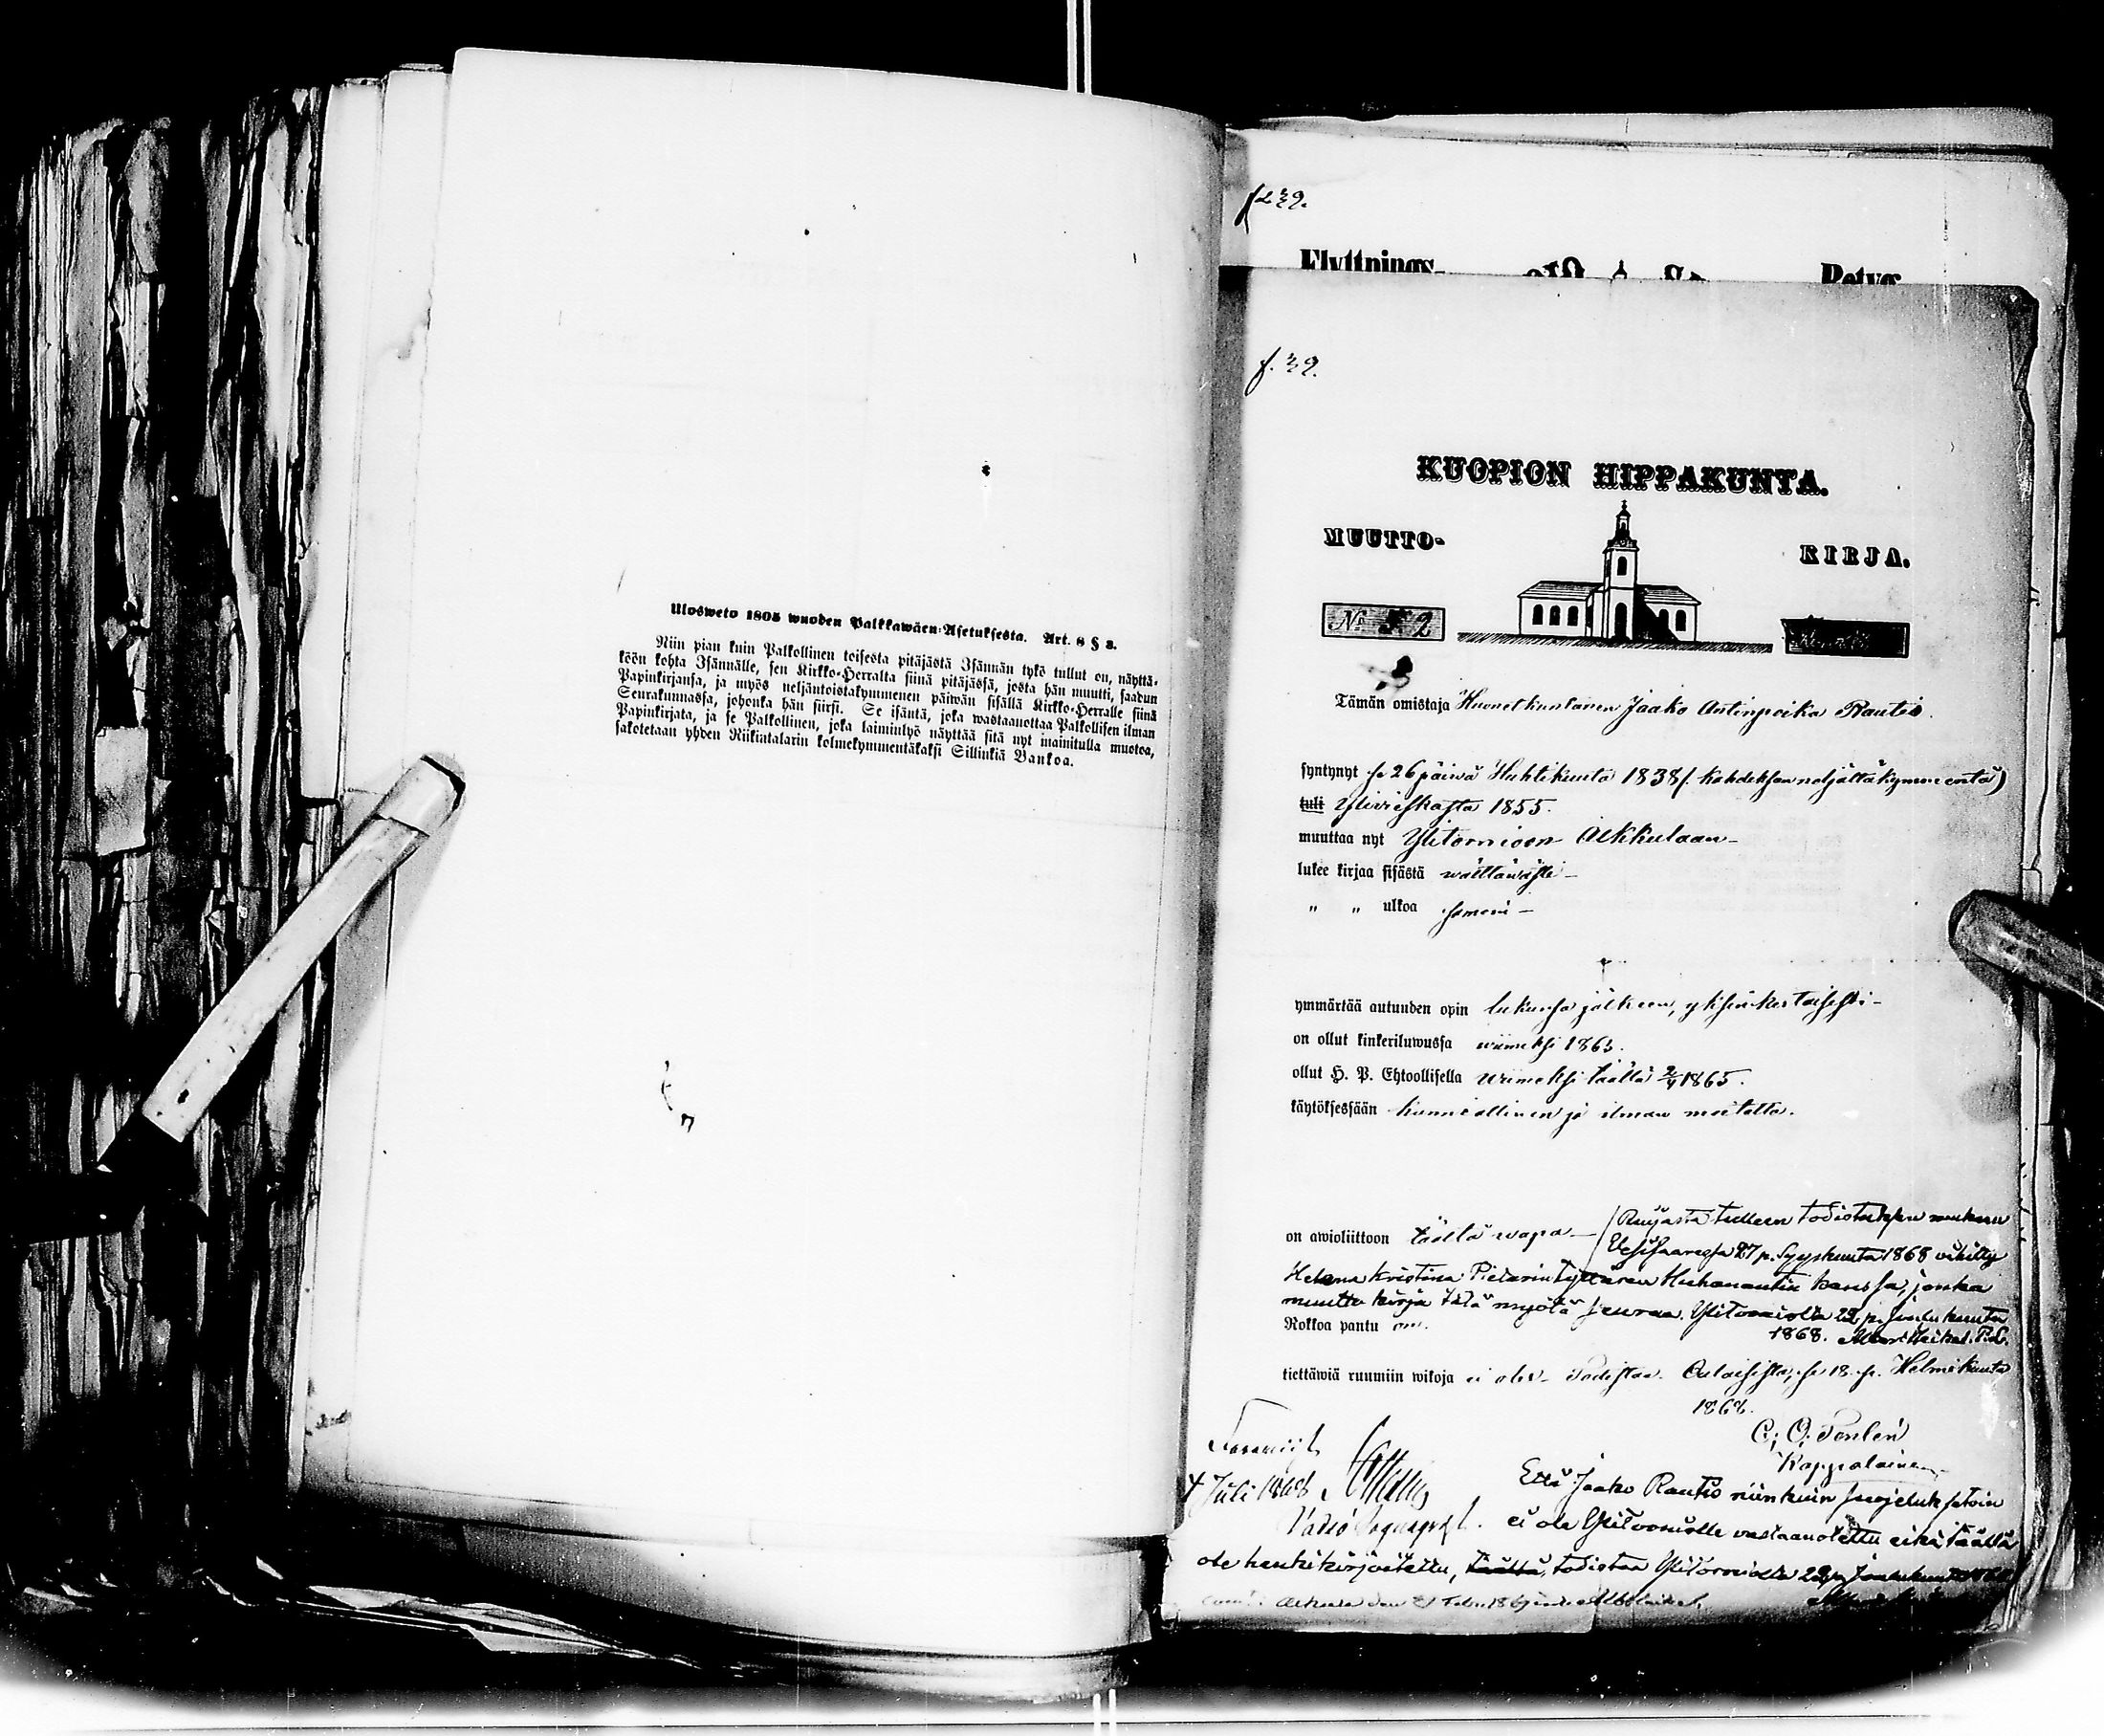 Ulosweto 1805 wuoden Palkkawäen-Asetuksesta. Art. 8 § 3.
Niin pian kuin Palkollinen toisesta pitäjästä Isännän tykö tullut on, näyttä-
köön kohta Isännälle, sen Kirkko-Herralta siinä pitäjässä, josta hän muutti, saadun
Papinkirjansa, ja myös neljäntoistakymmenen päiwän sisällä Kirkko-Herralle siinä
Seurakunnassa, johonka hän siirsi. Se isäntä, joka wastaanottaa Palkollisen ilman
Papinkirjata, ja se Palkollinen, joka laiminlyö näyttää sitä nyt mainitulla muotoa,
sakotetaan yhden Riikintalarin kolmekymmentäkaksi Sillinkiä Bankoa.
Flyttnings- Betyg
f. 39.
KUOPION HIPPAKUNTA.
MUUTTO- KIRJA.
No 52
Tämän omistaja Huonetkuntanen Jaako Antinpoika Rautio.
syntynyt se 26 päiwä Huhtikuuta 1838 (kahdeksanneljättäkymmentä)
tuli Ylivieskasta 1855.
muuttaa nyt Ylitornioon Alkkulaan-
lukee kirjaa sisästä wälttäwästi-
" " ulkoa samoin-
ymmärtää autuuden opin lukunsa jälkeen, yksinkertaisesti-
on ollut kinkeriluwussa wiimeksi 1865.
ollut H. P. Ehtoollisella wiimeksi täällä 2/4 1865.
käytöksessään kunniallinen ja ilman moitetta.
on awioliittoon täällä wapa- (Ruijasta tulleen todistuksen mukaan
Vesisaaressa 27 p. Syyskuuta 1868 vihitty
Helena Kristina Pietarintyttären Huhanantin kanssa, jonka
muutto kirja tätä myötä seuraa. Ylitorniolla 22 p. Joulukuuta
1868.
Rokkoa pantu on.
tiettäwiä ruumiin wikoja ei ole- Todistaa. Oulaisista, se 18 p. Helmikuuta
1868.
C; O; Ponlén
Kappalainen
4 Juli 1868
Että Jaako Rautio niinkuin suojeluksetoin
ei ole Ylitorniolle vastaanotettu eikä täällä
ole henkikirjoitettu, täällä, todistaa Ylitorniolla 22 p. Joulukuuta 1868